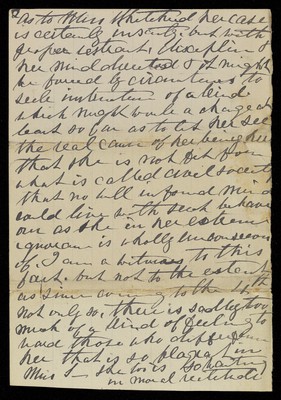 as to Miss Whitehead her case
is certainly insanity but with
proper restraint, discipline &
her mind directed & it might
be found by circumstances to
seek instruction of a kind
which might work a change at
least so far as to let her see
the real cause of her being here
that she is not fit for
what is called civil society
that no well informed mind
could live with such behavi
our as she in her extreme
ignorance is wholly unconscious
of. I am a witness to this
fact. but not to the extent
as since coming to the 4th
not only so, there is sadly too
much of a kind of feeling to
ward those who differ from
her that is so
Miss she too is so wanting
in moral rectitude